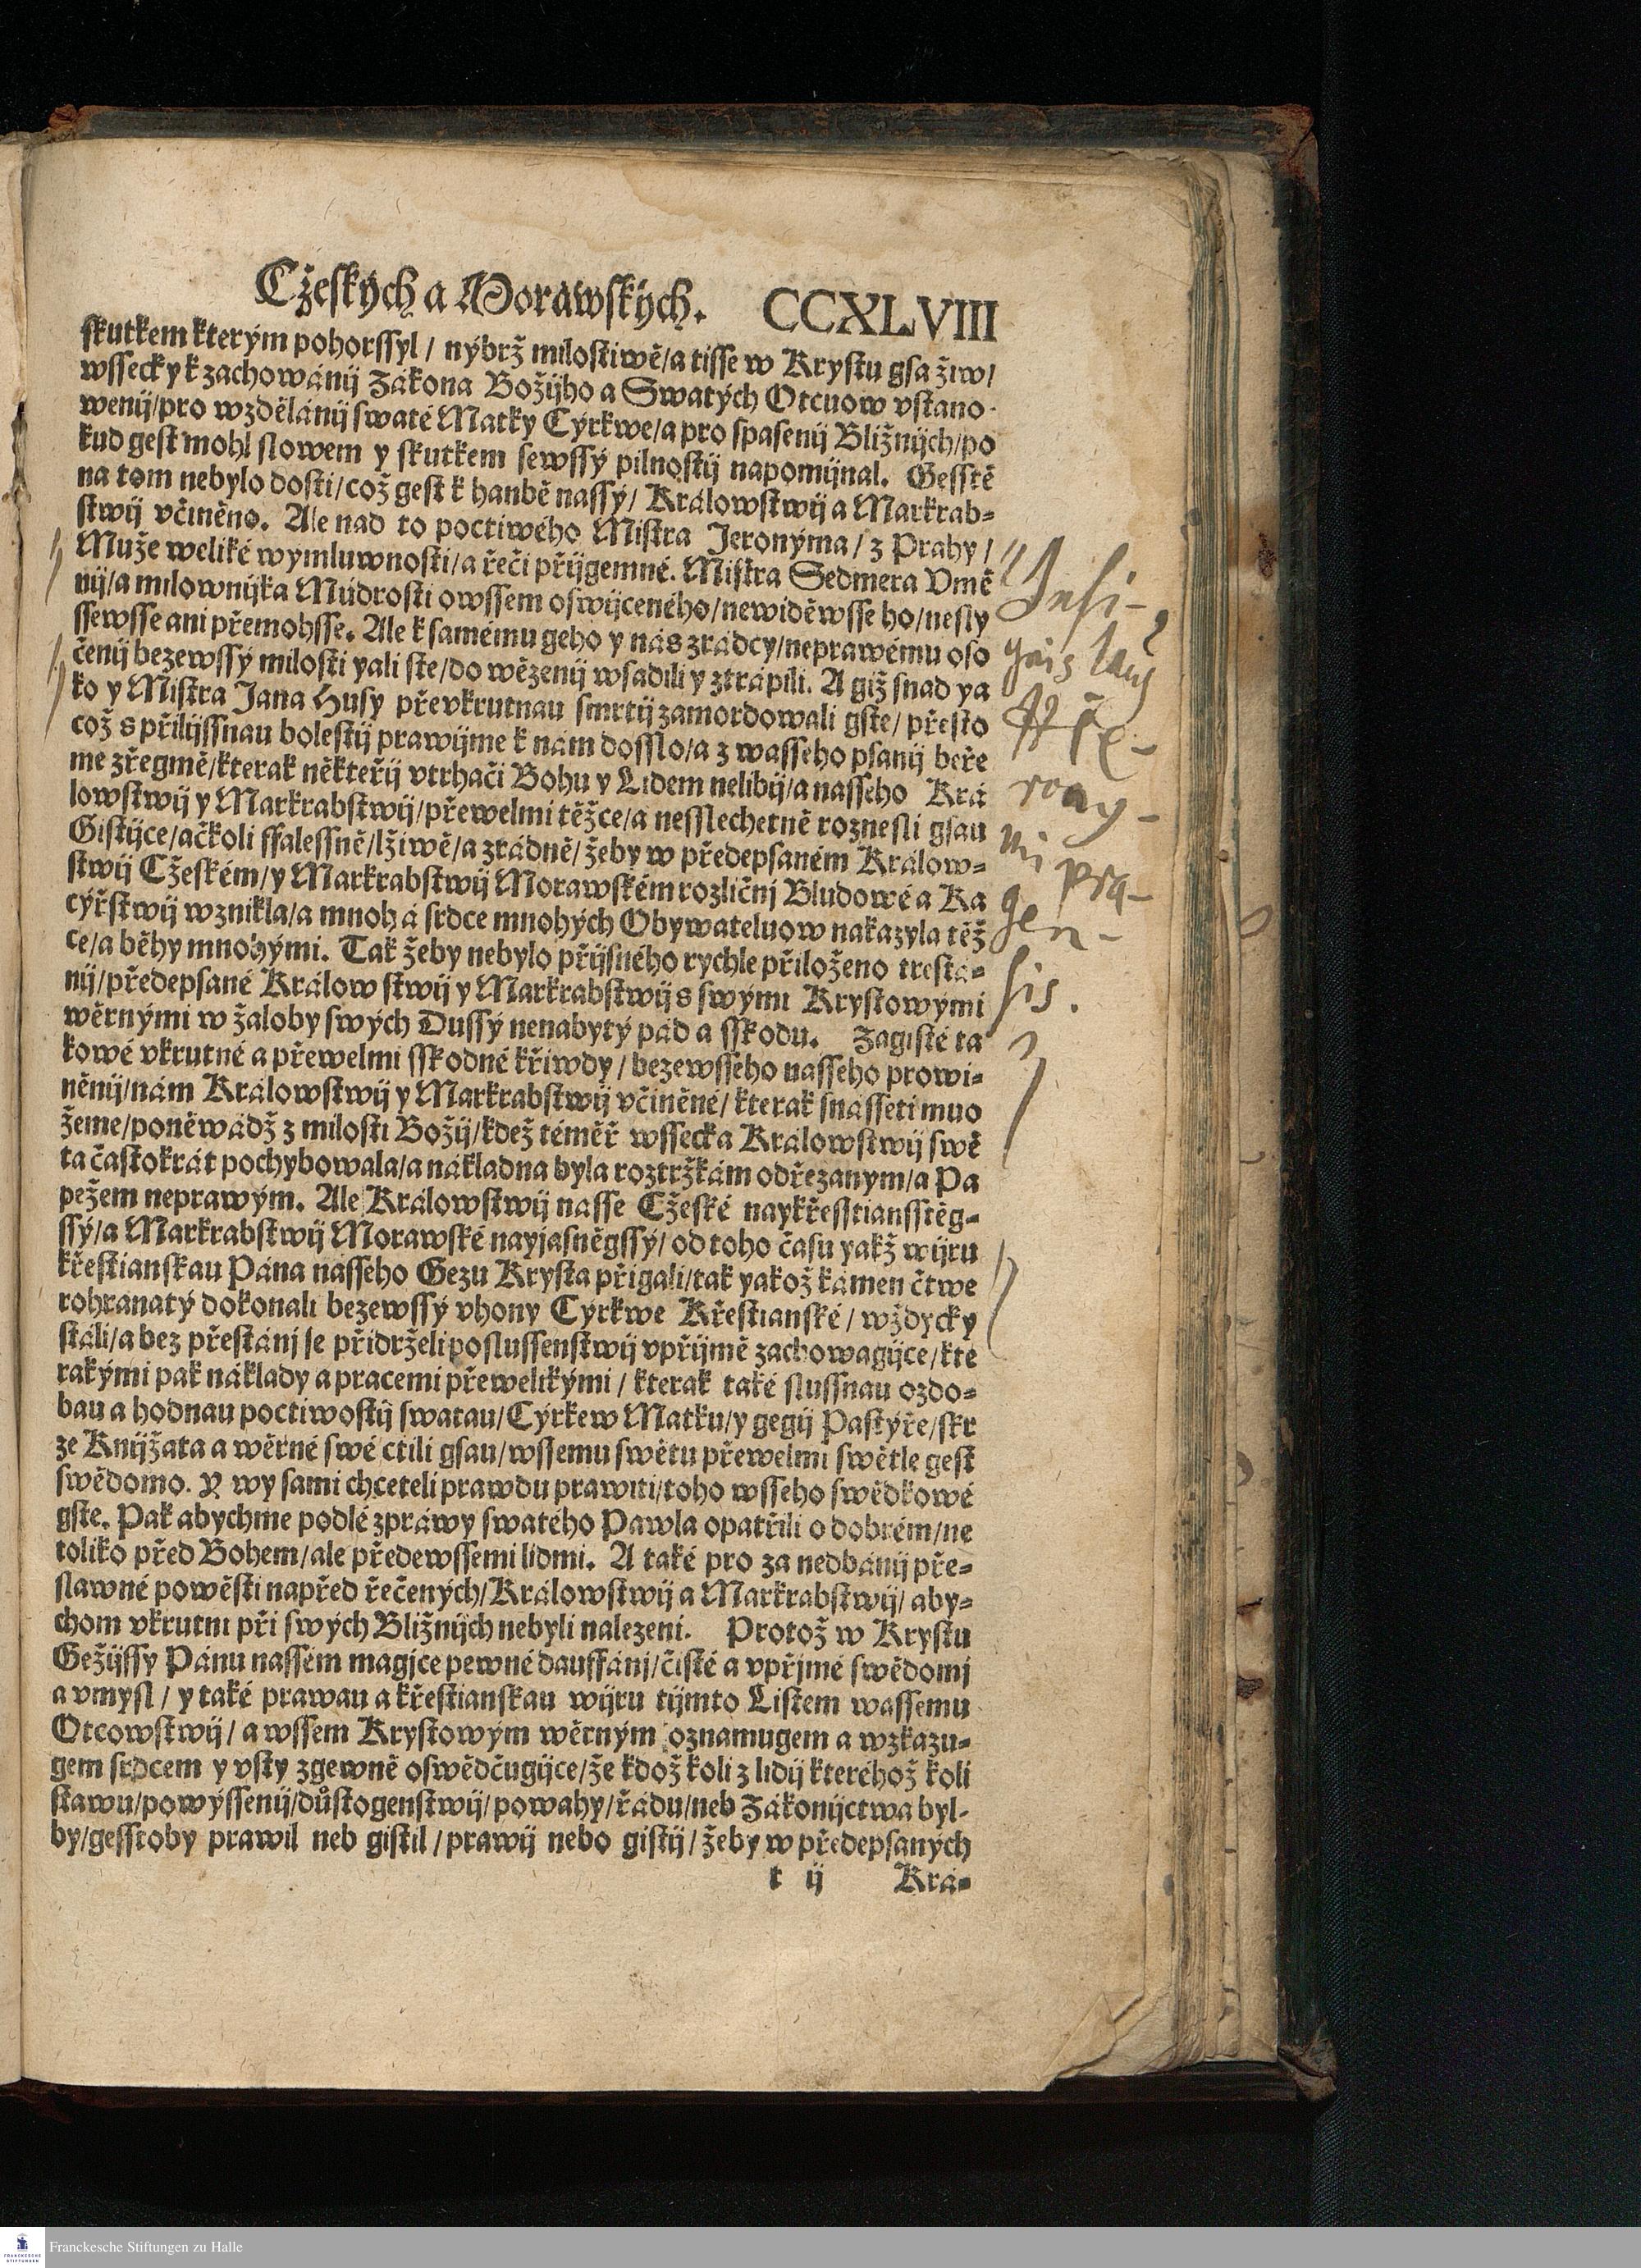 Cžeských a Morawských. CCXLVIII
skutkem kterým pohorssyl / nýbrž milostiwě/a tisse w Krystu gsa žiw/
wssecky k zachowánij Zákona Božijho a Swatých Otcuow vstano-
wenij/pro wzdělánij swaté Matky Cýrkwe/a pro spasenij Bližnijch/po
kud gest mohl slowem y skutkem sewssý pilnostij napomijnal. Gesstě
na tom nebylo dosti/což gest k hanbě nassý/ Králowstwij a Markrab-
stwij včiněno. Ale nad to poctiwého Mistra Jeronýma / z Prahy /
Muže weliké wymluwnosti/a řeči přijgemné. Mistra Sedmera Vmě
nij/a milownijka Múdrosti owssem oswijceného/newiděwsse ho/nesly
ssewsse ani přemohsse. Ale k samému geho y nás zrádcy/neprawému oso
čenij bezewssý milosti yali ste/do wězenij wsadili y ztrápili. A giž snad ya
ko y Mistra Jana Husy převkrutnau smrtij zamordowali gste/ přesto
což s přilijssnau bolestij prawijme k nám dosslo/a z wasseho psanij beře
me zřegmě/kterak někteřij vtrhači Bohu y Lidem nelibij/a nasseho Krá
lowstwij y Markrabstwij/přewelmi těžce/a nesslechetně roznesli gsau
Gistijce/ačkoli ffalessně/lžiwě/a zrádně/ žeby w předepsaném Králow-
stwij Cžeském/y Markrabstwij Morawském rozlični Bludowé a Ka
cýřstwij wznikla/a mnohá srdce mnohých Obywateluow nakazyla těž
ce/a běhy mnohými. Tak žeby nebylo přijsného rychle přiloženo trestá-
nij/předepsané Králow stwij y Markrabstwij s swými Krystowými
wěrnými w žaloby swých Dussý nenabytý pád a sskodu. Zagisté ta
kowé vkrutné a přewelmi sskodné křiwdy / bezewsseho nasseho prowi-
něnij/nám Králowstwij y Markrabstwij včiněné/ kterak snásseti muo
žeme/poněwádž z milosti Božij/kdež téměř wssecka Králowstwij swě
ta častokrát pochybowala/a nákladna byla roztržkám odřezaným/a Pa
pežem neprawým. Ale Králowstwij nasse Cžeské naykřesstiansstěg-
ssý/a Markrabstwij Morawské nayjasněgssý/ od toho času yakž wijru
křestianskau Pána nasseho Gezu Krysta přigali/tak yakož kámen čtwe
rohranatý dokonali bezewssý vhony Cýrkwe Křestianské / wždycky
stáli/a bez přestáni se přidrželi poslussenstwij vpřijmě zachowagijce/kte
rakými pak náklady a pracemi přewelikými / kterak také slussnau ozdo-
bau a hodnau poctiwostij swatau/Cýrkew Matku/y gegij Pastýře/skr
ze Knijžata a wěrné swé ctili gsau/wssemu swětu přewelmi swětle gest
swědomo. Y wy sami chceteli prawdu prawiti/toho wsseho swědkowé
gste. Pak abychme podlé zpráwy swatého Pawla opatřili o dobrém/ne
toliko před Bohem/ale předewssemi lidmi. A také pro za nedbánij pře-
slawné powěsti napřed řečených/Králowstwij a Markrabstwij/ aby-
chom vkrutni při swých Bližnijch nebyli nalezeni. Protož w Krystu
Gežijssy Pánu nassem magice pewné dauffáni/čisté a vpřjmé swědomj
a vmysl / y také prawau a křestianskau wijru tijmto Listem wassemu
Otcowstwij/ a wssem Krystowým wěrným oznamugem a wzkazu-
gem srdcem y vsty zgewně oswědčugijce/že kdož koli z lidij kteréhož koli
stawu/powýssenij/důstogenstwij/powahy/řádu/neb Zákonijctwa byl-
by/gesstoby prawil neb gistil / prawij nebo gistij / žeby w předepsaných
t ij Krá-
Insi-
gnis laus
Hie-
rony-
mi Pra-
gen-
sis.
Franckesche Stiftungen zu Halle